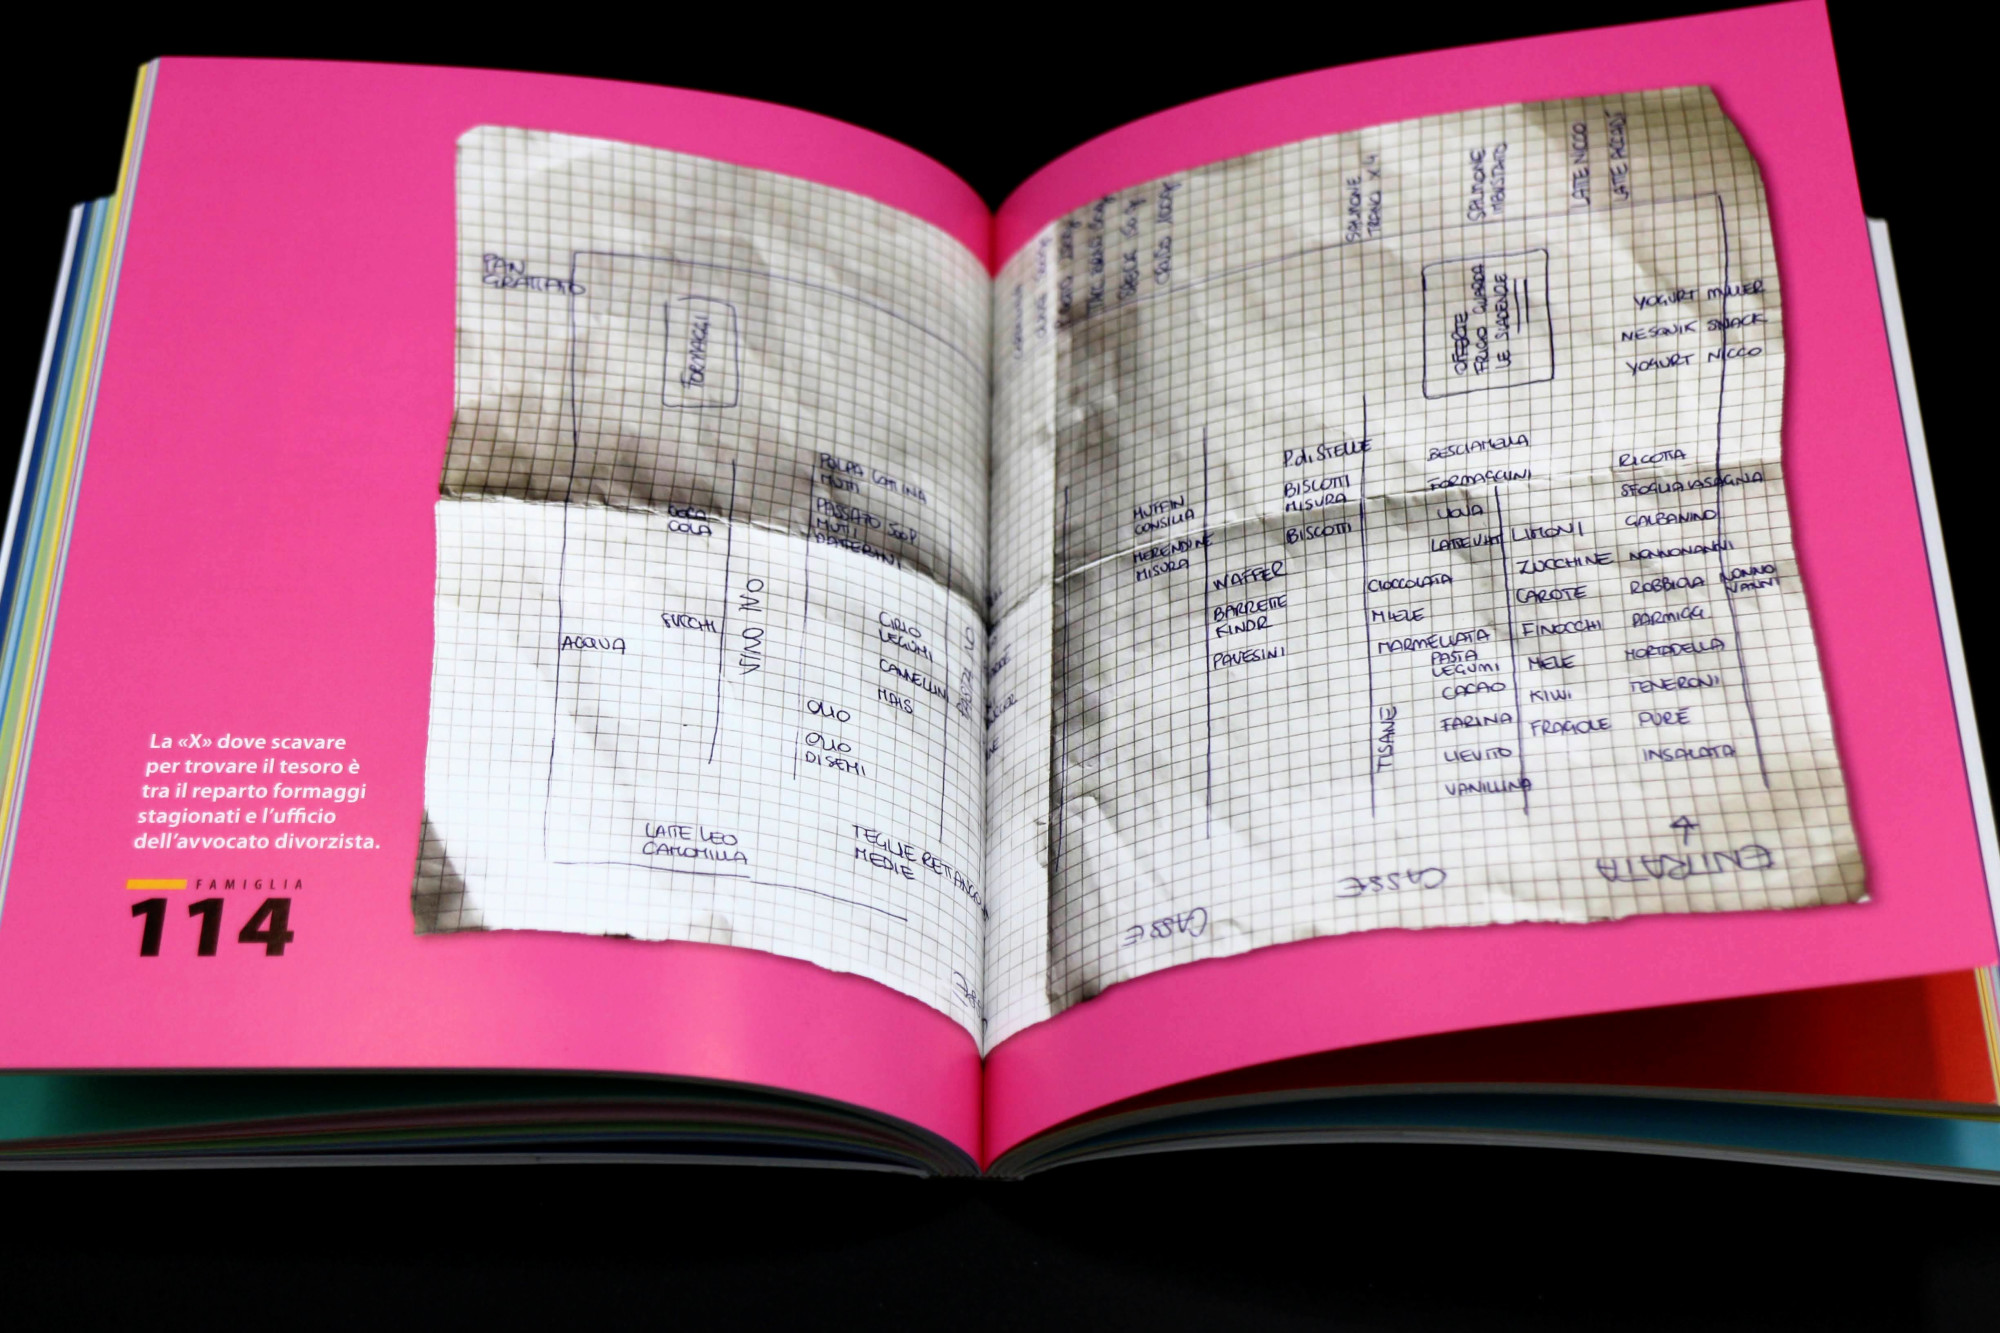 PAN
GRATTATO
FORMAGGI
POLPA LATINA
MUTTI
PASSATO 500P
MUTTI
DATTERINI
COCA
COLA
VINO
VINO
SUCCHI
ACQUA
CIRIO
LEGUMI
CANNELLINI
MAIS
OLIO
OLIO
DI SEMI
LATTE LEO
CAMOMILLA
TEGLIE RETTANGO
MEDIE
La «X» dove scavare
per trovare il tesoro è
tra il reparto formaggi
stagionati e l’ufficio
dell’avvocato divorzista.
FAMIGLIA
114
SALMONE
TRANCI X4
SALMONE
LATTE NICCO
LATTE ACCADI
OFFERTE
FRIGO GUARDA
LE SCADENZE
YOGURT MULLER
NESQUIK SNACK
YOGURT NICCO
MUFFIN
CONSILIA
MERENDINE
MISURA
P. di STELLE
BISCOTTI
MISURA
BISCOTTI
WAFFER
BARRETTE
KINDR
PAVESINI
BESCIAMELLA
FORMAGGINI
UOVA
LATTE VHT
CIOCCOLATA
MIELE
MARMELLATA
PASTA
LEGUMI
CACAO
FARINA
LIEVITO
VANILLINA
TISANE
LIMONI
ZUCCHINE
CAROTE
FINOCCHI
MELE
KIWI
FRAGOLE
RICOTTA
SFOGLIA LASAGNA
GALBANINO
NONNONANNI
ROBBIOLA
NONNO
NANNI
PARMIGG.
MORTADELLA
TENERONI
PURÈ
INSALATA
ENTRATA
CASSE
CASSE